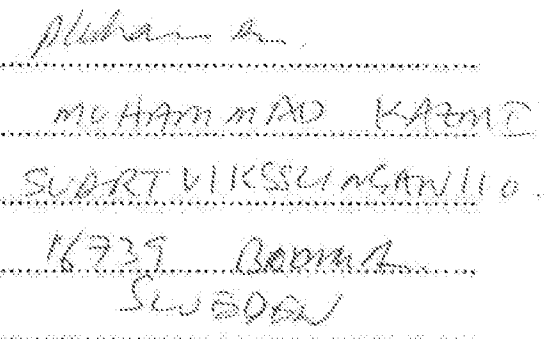 MOHAMMAD KAZMI
SVARTVIKSSLINGAN 110.
16739 BROMMA
SWEDEN